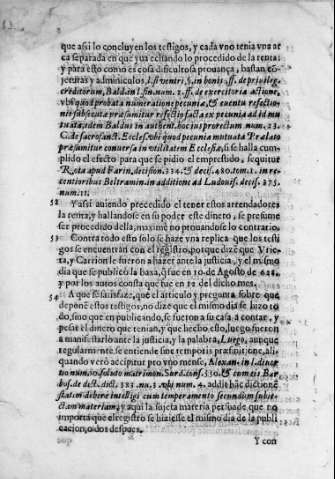 que assi lo concluyen los testigos, y cada vno tenia vna ar
ca separada en que yua echando lo procedido de la renta:
y para esto como es cosa dificultosa prouança, bastan cō-
jeturas y adminiculos, l. si ventri, §. in bonis, ff. de priuileg.
creditorum, Bald. in l. fin. num. 2. ff. de exercitoria actione,
vbi quod probata numeratione pecuniæ, & euentu refectio-
nis subsecuta præsumitur refectio facta ex pecunia ad id mu
tuata, idem Baldus in authent. hoc ius porrectum num. 23.
C. de sacrosanct. Eccles. vbi quod pecunia mutuata Prælato
præsumitur conuersa in vtilitatem Ecclesiæ, si se halla cum-
plido el efecto para que se pidio el emprestido, sequitur
Rota apud Farin. decision. 334. & decis. 480. tom. 1. in re-
centioribus Beltramin. in additione ad Ludouis. decis. 275.
num. 11.
52 Y assi auiendo precedido el tener estos arrendadores
la renta, y hallandose en su poder este dinero, se presume
ser procedido della, maximè no prouandose lo contrario.
53 Contra todo esto solo se haze vna replica que los testi
gos se encuentran con el registro, porque dizē que Vrie-
ta, y Carrion se fueron a hazer ante la justicia, y el mismo
dia que se publicò la baxa, q̄ fue en 10. de Agosto de 628.
y por los autos consta que fue en 12 del dicho mes.
54 A que se satisfaze, que el articulo y pregunta sobre que
deponē estos testigos, no dize que el mismo dia se hizo to
do, sino que en publicando, se fueron a su casa a contar, y
pesar el dinero que tenian, y que hecho esto, luego fueron
a manifestarlo ante la justicia, y la palabra, Luego, aunque
regularmente se entiende sine temporis præfinitione, ali-
quando verò accipitur pro vno mense, Alexan. in l. diuor
tio num. 10. soluto matrimon. Surd. cons. 330. & com eis Bar
bos. de dict. dict. 323. nu. 3. vbi num. 4. addit hāc dictionē
statim debere intelligi cum temperamento secundum subie-
ctam materiam, y aqui la sujeta materia persuade que no
importa que el registro se hiziesse el mismo dia de la publi
cacion, o dos despues.
Y con